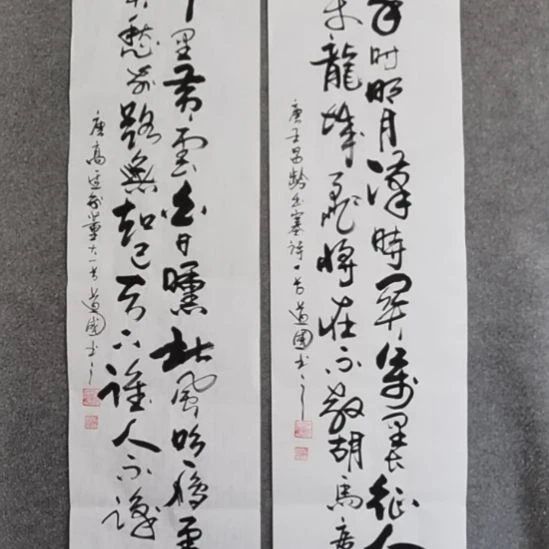 秦时明月漢時関萬里长征人
龍城飛將在不教胡馬度
庚子昌齡出塞詩一首道國书
千里黄雲白日曛北风吹雁雪
愁前路無知己天下谁人不識
唐高适别董大一首道國书